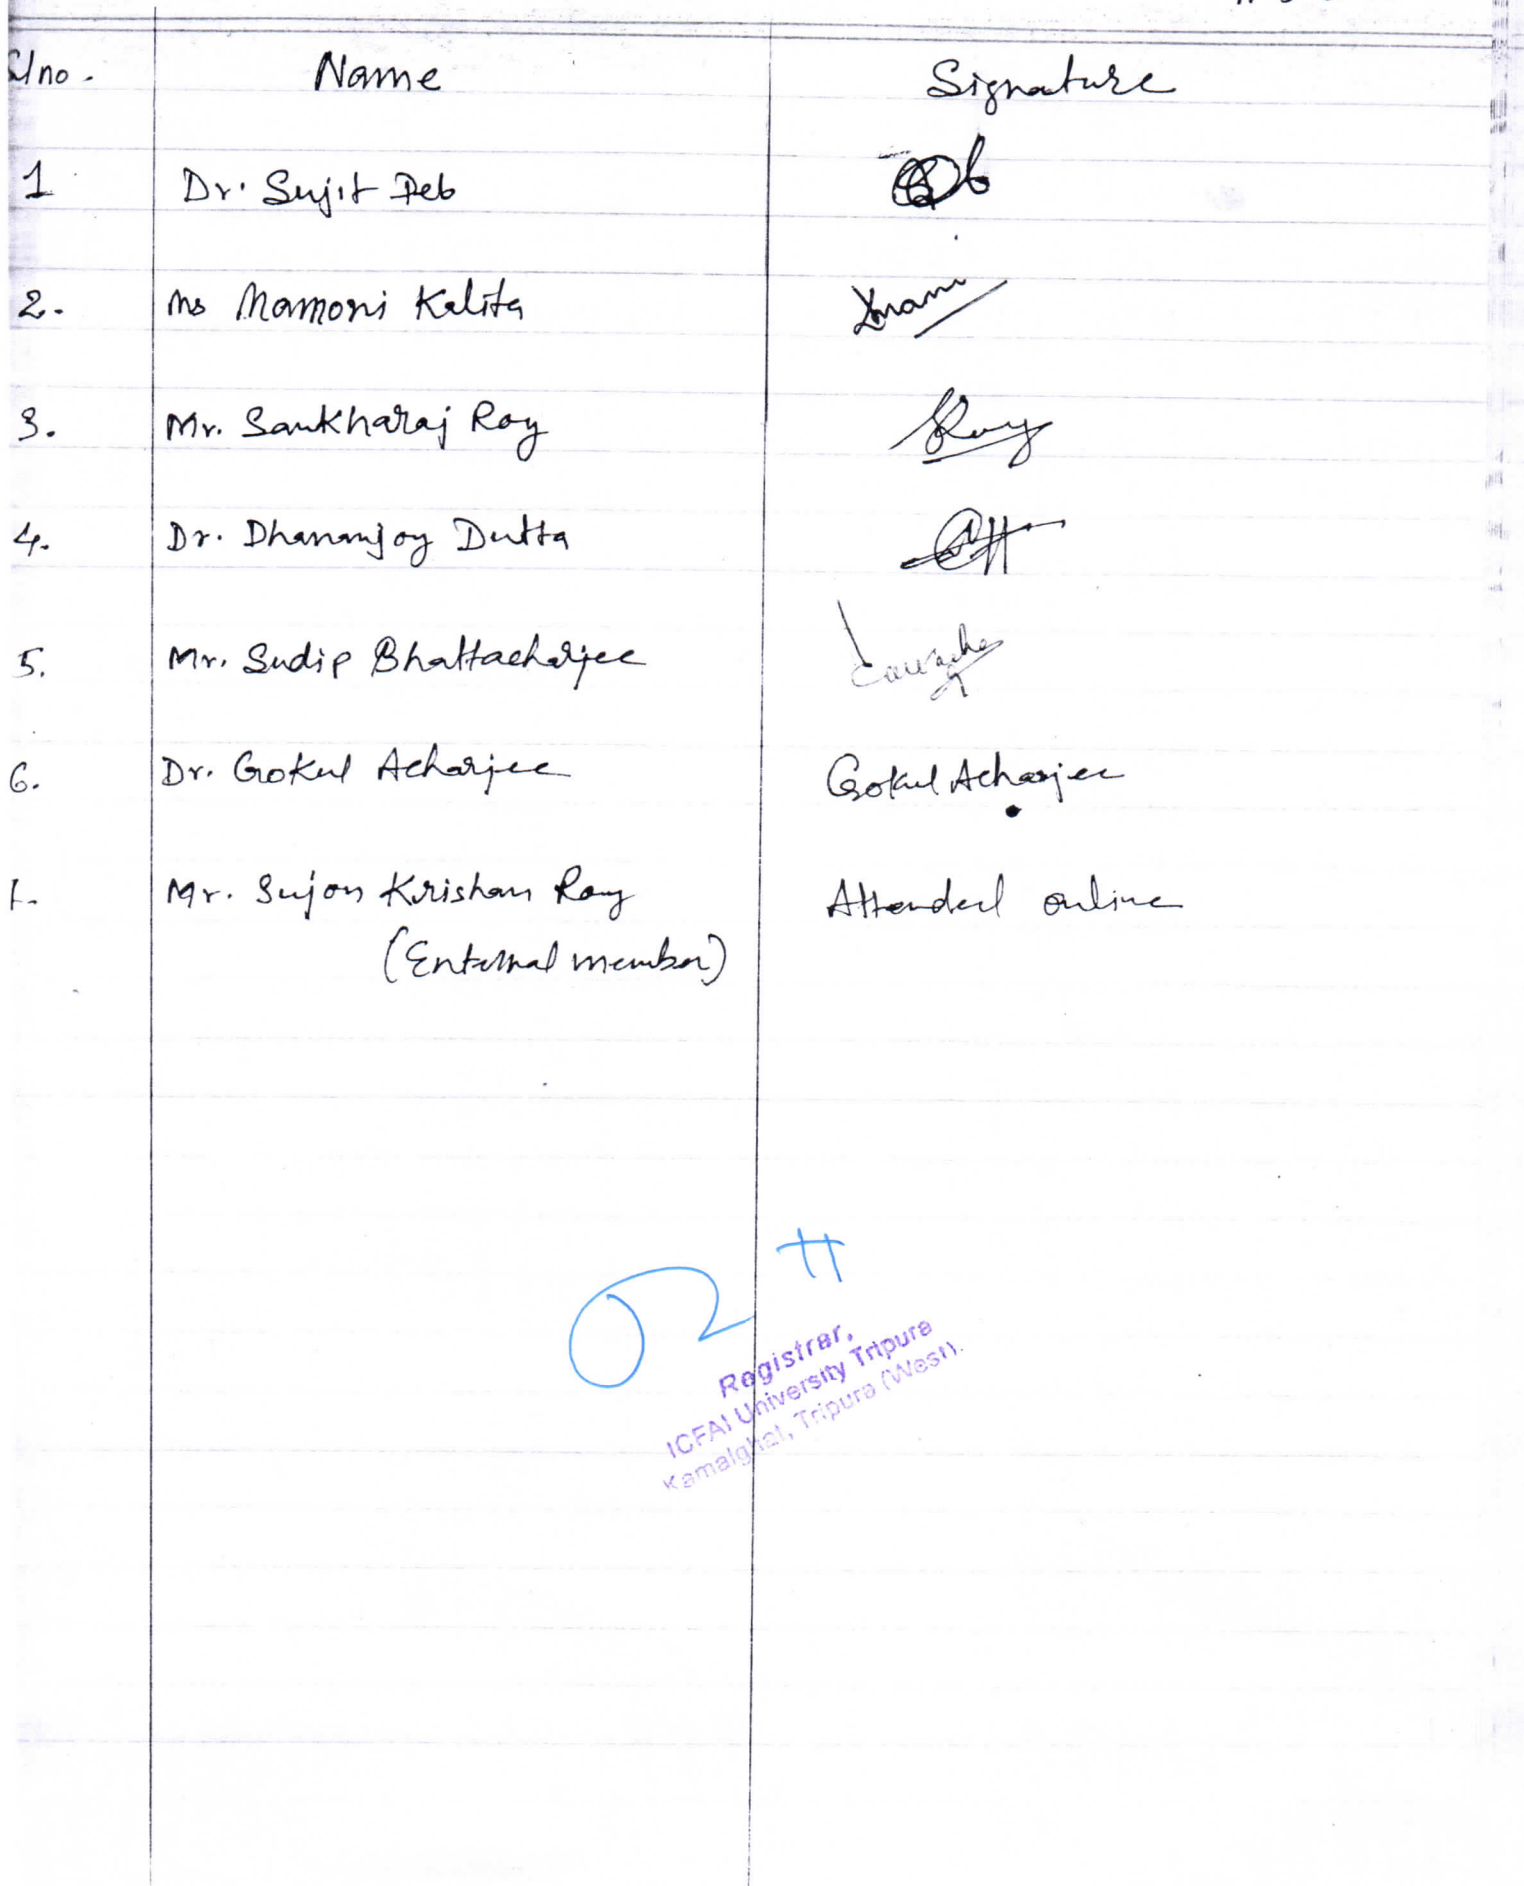 Slno. Name Signature
1 Dr. Sujit Deb
2. Ms Mamoni Kalita
3. Mr. Sankharaj Roy Roy
4. Dr. Dhananjoy Dutta
5. Mr. Sudip Bhattacharjee
6. Dr. Gokul Acharjee Gokul Acharjee
Mr. Sujon Krishan Roy Attended online
(External member)
Registrar,
ICFAI University Tripura
Kamalghat, Tripura (West).